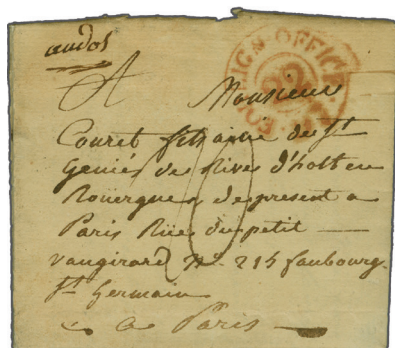 andos
FOREIGN OFFICE
A Monsieur
Couret fils ainé de St
Geniés de Rives d'holt en
Rouergue de present a
Paris Rue du petit
vaugirard N° 215 faubourg
St Germain
a Paris